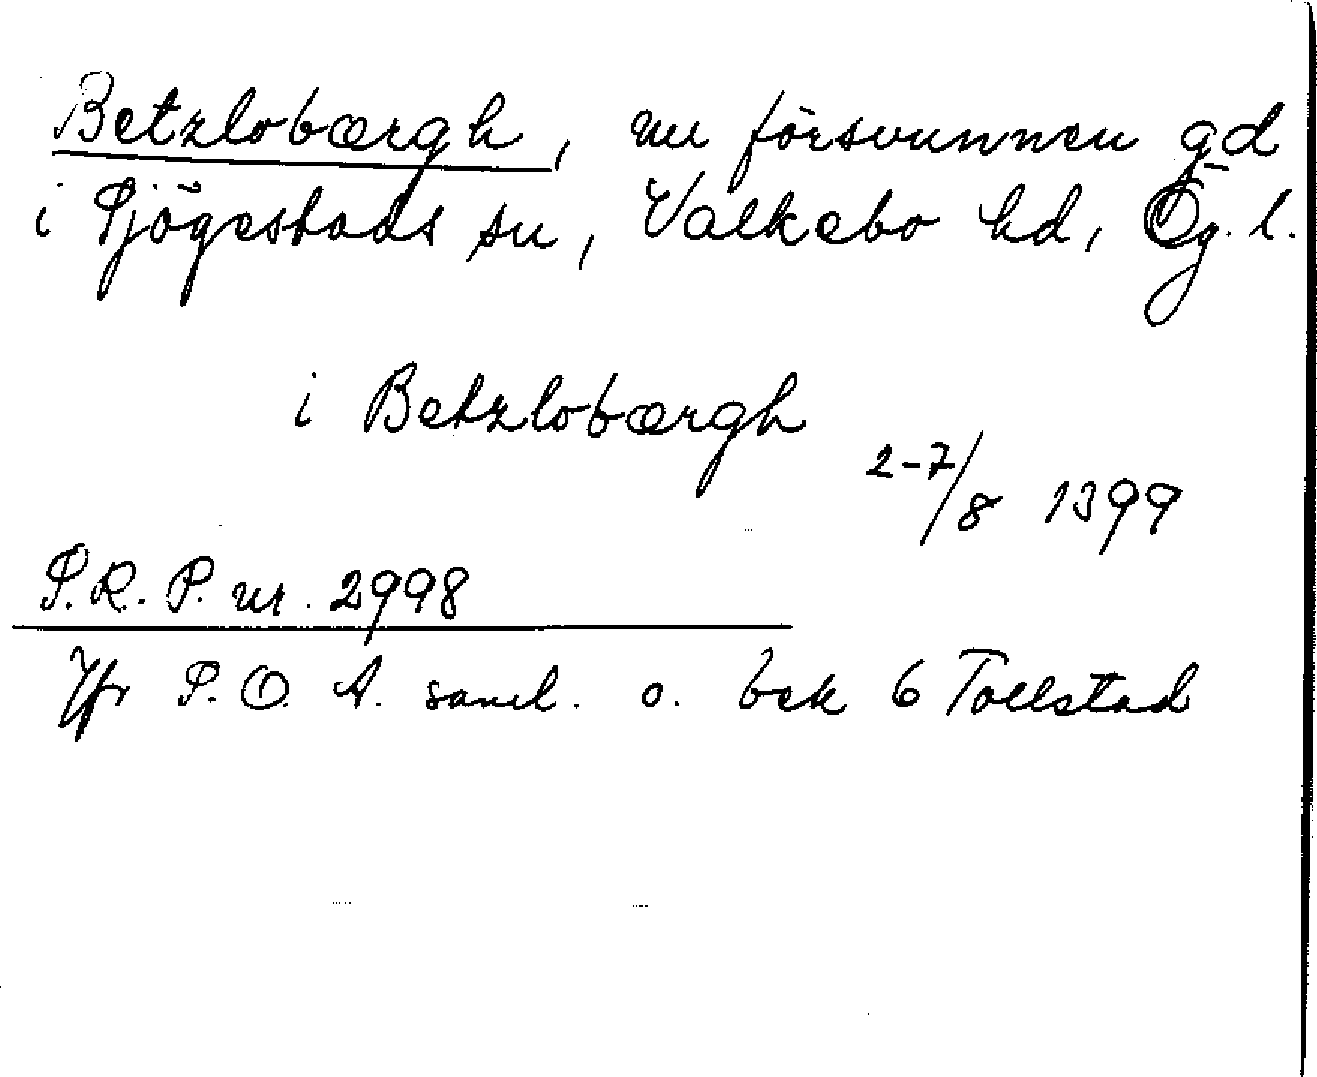 Betzlobærgh, nu försvunnen gd
i Sjögestads sn, Valkebo hd, Ög. l.
i Betzlobærgh
2-7/8 1399
S.R.P. nr. 2998
Jfr S.O.A. saml. o. bek 6 Tollstad